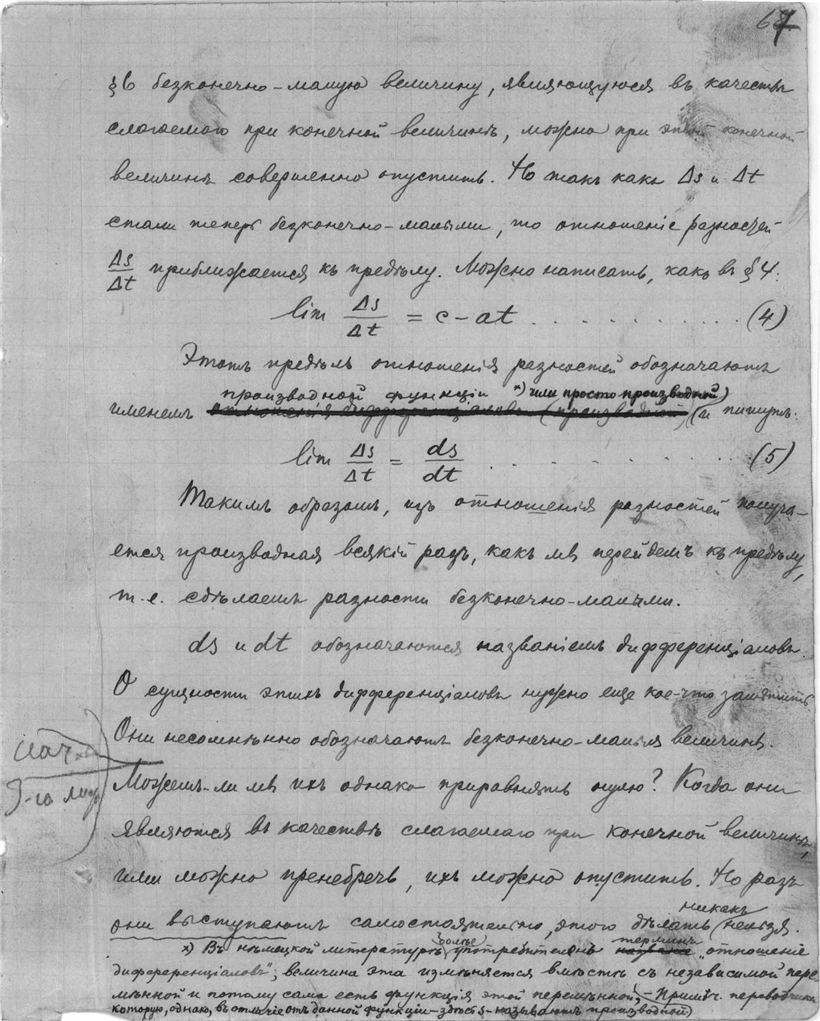 67
§6 безконечно-малую величину, являющуюся въ качествѣ
слагаемого при конечной величинѣ, можно при этой конечной
величинѣ совершенно опустить. Но такъ какъ Δs и Δt
стали теперь безконечно-малыми, то отношеніе разностей
Δs/Δt приближается къ предѣлу. Можно написать, какъ въ § 4:
lim Δs/Δt = c - at . . . . . . . . . . . . (4)
Этотъ предѣлъ отношенія разностей обозначаютъ
производной функціи *) или просто производной)
именемъ отношенія дифференціаловъ (производной) (и пишутъ:
lim Δs/Δt = ds/dt . . . . . . . . . (5)
Такимъ образомъ, изъ отношенія разностей получа-
ется производная всякій разъ, какъ мы перейдемъ къ предѣлу,
т.е. сдѣлаемъ разности безконечно-малыми.
ds и dt обозначаются названіемъ дифференціаловъ.
О сущности этихъ дифференціаловъ нужно еще кое-что замѣтить.
Они несомнѣнно обозначаютъ безконечно-малыя величины.
Можемъ-ли мы ихъ однако приравнять нулю? Когда они
являются въ качествѣ слагаемаго при конечной величинѣ,
или можно пренебречь, ихъ можно опустить. Но разъ
никакъ
они выступаютъ самостоятельно, этого дѣлать нельзя.
болѣе терминъ
x) Въ нѣмецкой литературѣ употребителенъ названіе „отношеніе
дифференціаловъ“; величина эта измѣняется вмѣстѣ съ независимой пере
мѣнной и потому сама есть функція этой перемѣнной, – Примѣч. переводчика
которую, однако, въ отличіе отъ данной функціи – здѣсь s – называютъ производной)
нач.
9-го